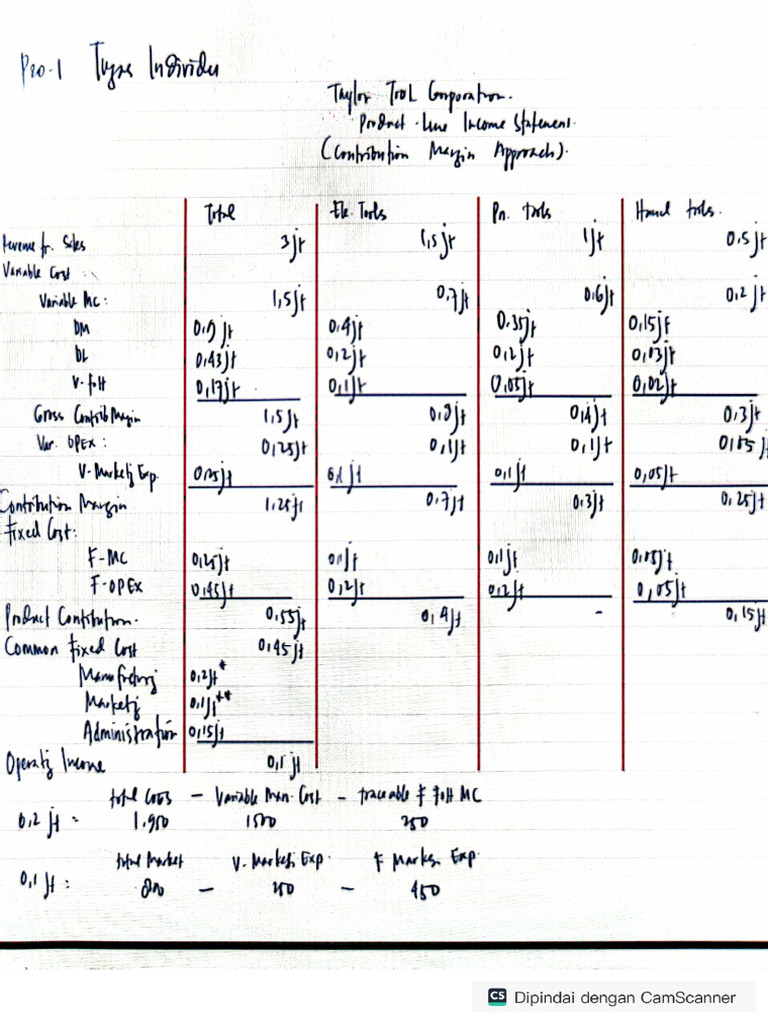 Pro-1 Tugas Individu
Taylor Tool Corporation.
Product-Line Income Statement.
(Contribution Margin Approach).
Total Ele. Tools Pn. Tools Hand tools.
Revenue fr. Sales 3jt 1,5jt 1jt 0,5jt
Variable Cost :
Variable MC: 1,5jt 0,7jt 0,6jt 0,2jt
DM 0,9jt 0,4jt 0,35jt 0,15jt
DL 0,43jt 0,2jt 0,2jt 0,03jt
V-FOH 0,17jt 0,1jt 0,05jt 0,02jt
Gross Contrib Margin 1,5jt 0,8jt 0,4jt 0,3jt
Var. OPEX : 0,25jt 0,1jt 0,1jt 0,05jt
V-Marketg Exp. 0,25jt 0,1jt 0,1jt 0,05jt
Contribution Margin 1,25jt 0,7jt 0,3jt 0,25jt
Fixed Cost:
F-MC 0,25jt 0,1jt 0,1jt 0,05jt
F-OPEX 0,45jt 0,2jt 0,2jt 0,05jt
Product Contribution. 0,55jt 0,4jt - 0,15jt
Common Fixed Cost 0,45jt
Manufctring 0,2jt*
Marketg 0,1jt**
Administration 0,15jt
Operatg Income 0,1jt
total COGS - Variable Man. Cost - traceable F FOH MC
0,2 jt = 1.950 1500 250
total Market V. Marketi Exp. F Marken Exp.
0,1 jt = 800 - 250 - 450
CS Dipindai dengan CamScanner